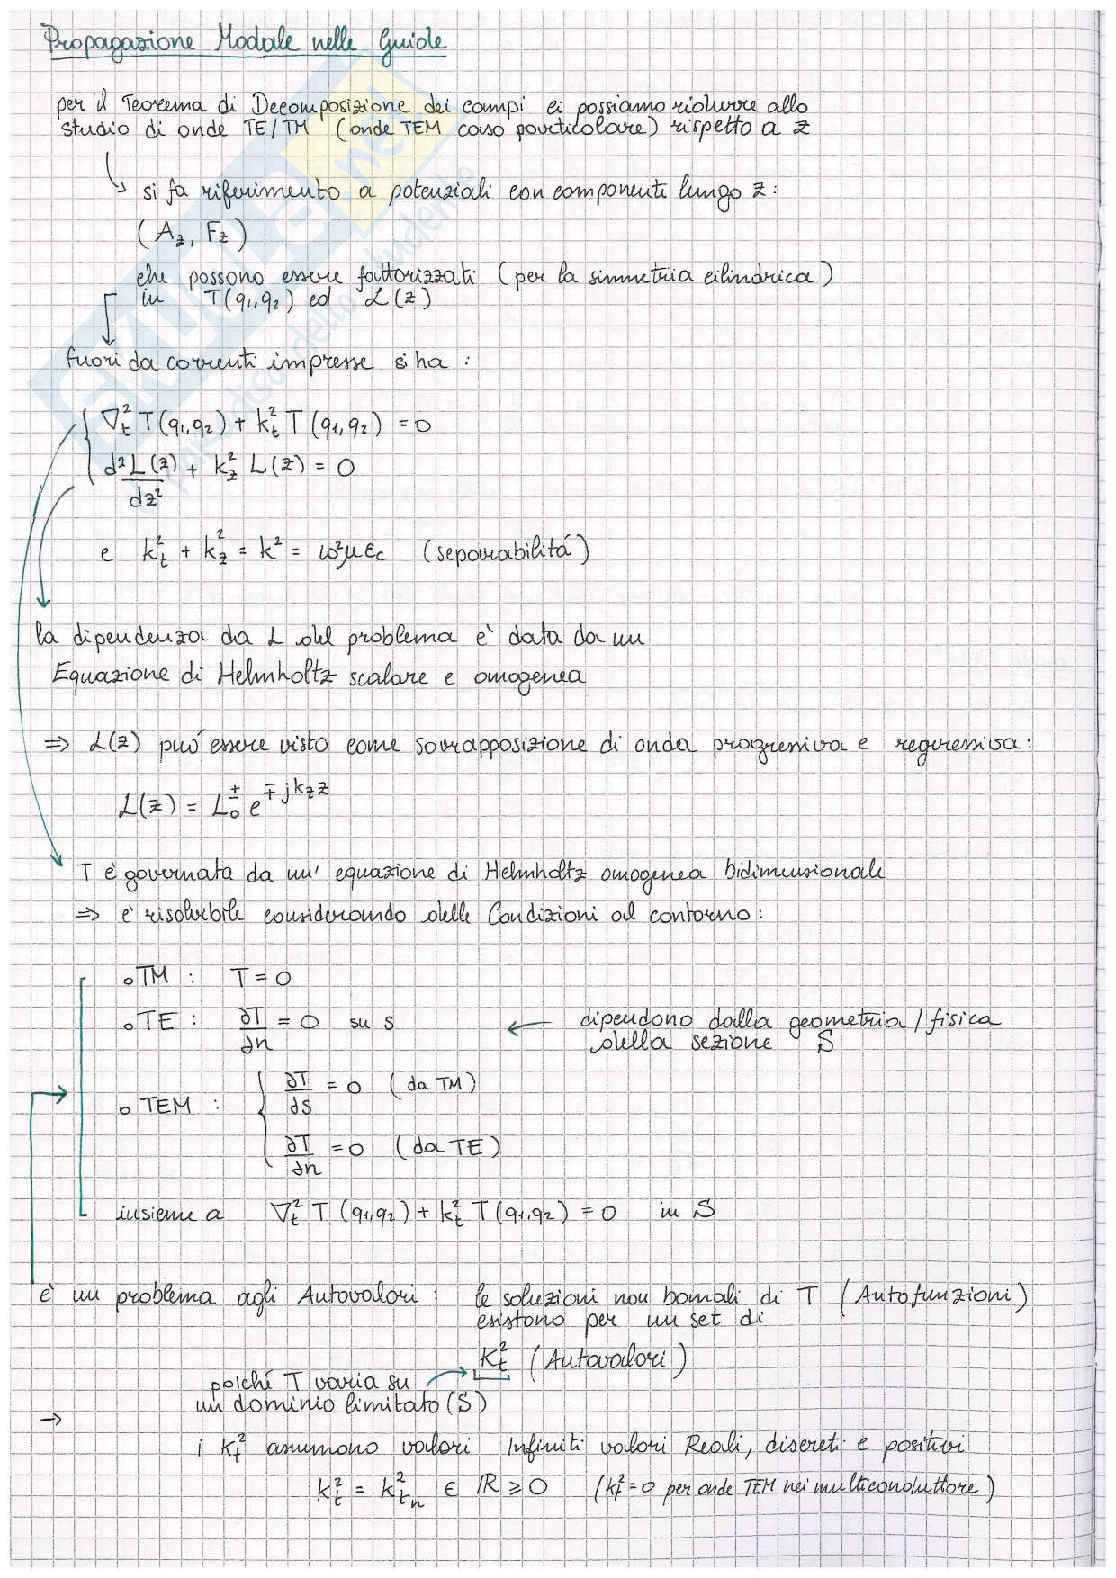 Propagazione Modale nelle Guide
per il Teorema di Decomposizione dei campi ci possiamo ridurre allo
studio di onde TE/TM (onde TEM caso particolare) rispetto a z
si fa riferimento a potenziali con componenti lungo z:
(A_z, F_z)
che possono essere fattorizzati (per la simmetria cilindrica)
in T(q₁,q₂) ed L(z)
fuori da correnti impresse si ha:
∇_t² T(q₁,q₂) + k_t² T(q₁,q₂) = 0
d²L(z)/dz² + k_z² L(z) = 0
e k_t² + k_z² = k² = ω²με_c (separabilitá)
la dipendenza da L del problema è data da un
Equazione di Helmholtz scalare e omogenea
⇒ L(z) puó essere visto come sovrapposizione di onda progressiva e regressiva:
L(z) = L₀^± e^{∓jk_z z}
T è governata da un' equazione di Helmholtz omogenea bidimensionale
⇒ è risolvibile considerando delle Condizioni al contorno:
o TM : T = 0
o TE : ∂T/∂n = 0 su s ← dipendono dalla geometria / fisica
della sezione S
o TEM : ∂T/∂s = 0 (da TM)
∂T/∂n = 0 (da TE)
insieme a ∇_t² T(q₁,q₂) + k_t² T(q₁,q₂) = 0 in S
È un problema agli Autovalori: le soluzioni non banali di T (Autofunzioni)
esistono per un set di
k_t² (Autovalori)
poiché T varia su
un dominio limitato (S)
→
i k_t² assumono valori Infiniti valori Reali, discreti e positivi
k_t² = k_{tn}² ∈ ℝ ≥ 0 (k_t² = 0 per onde TEM nei multiconduttore)